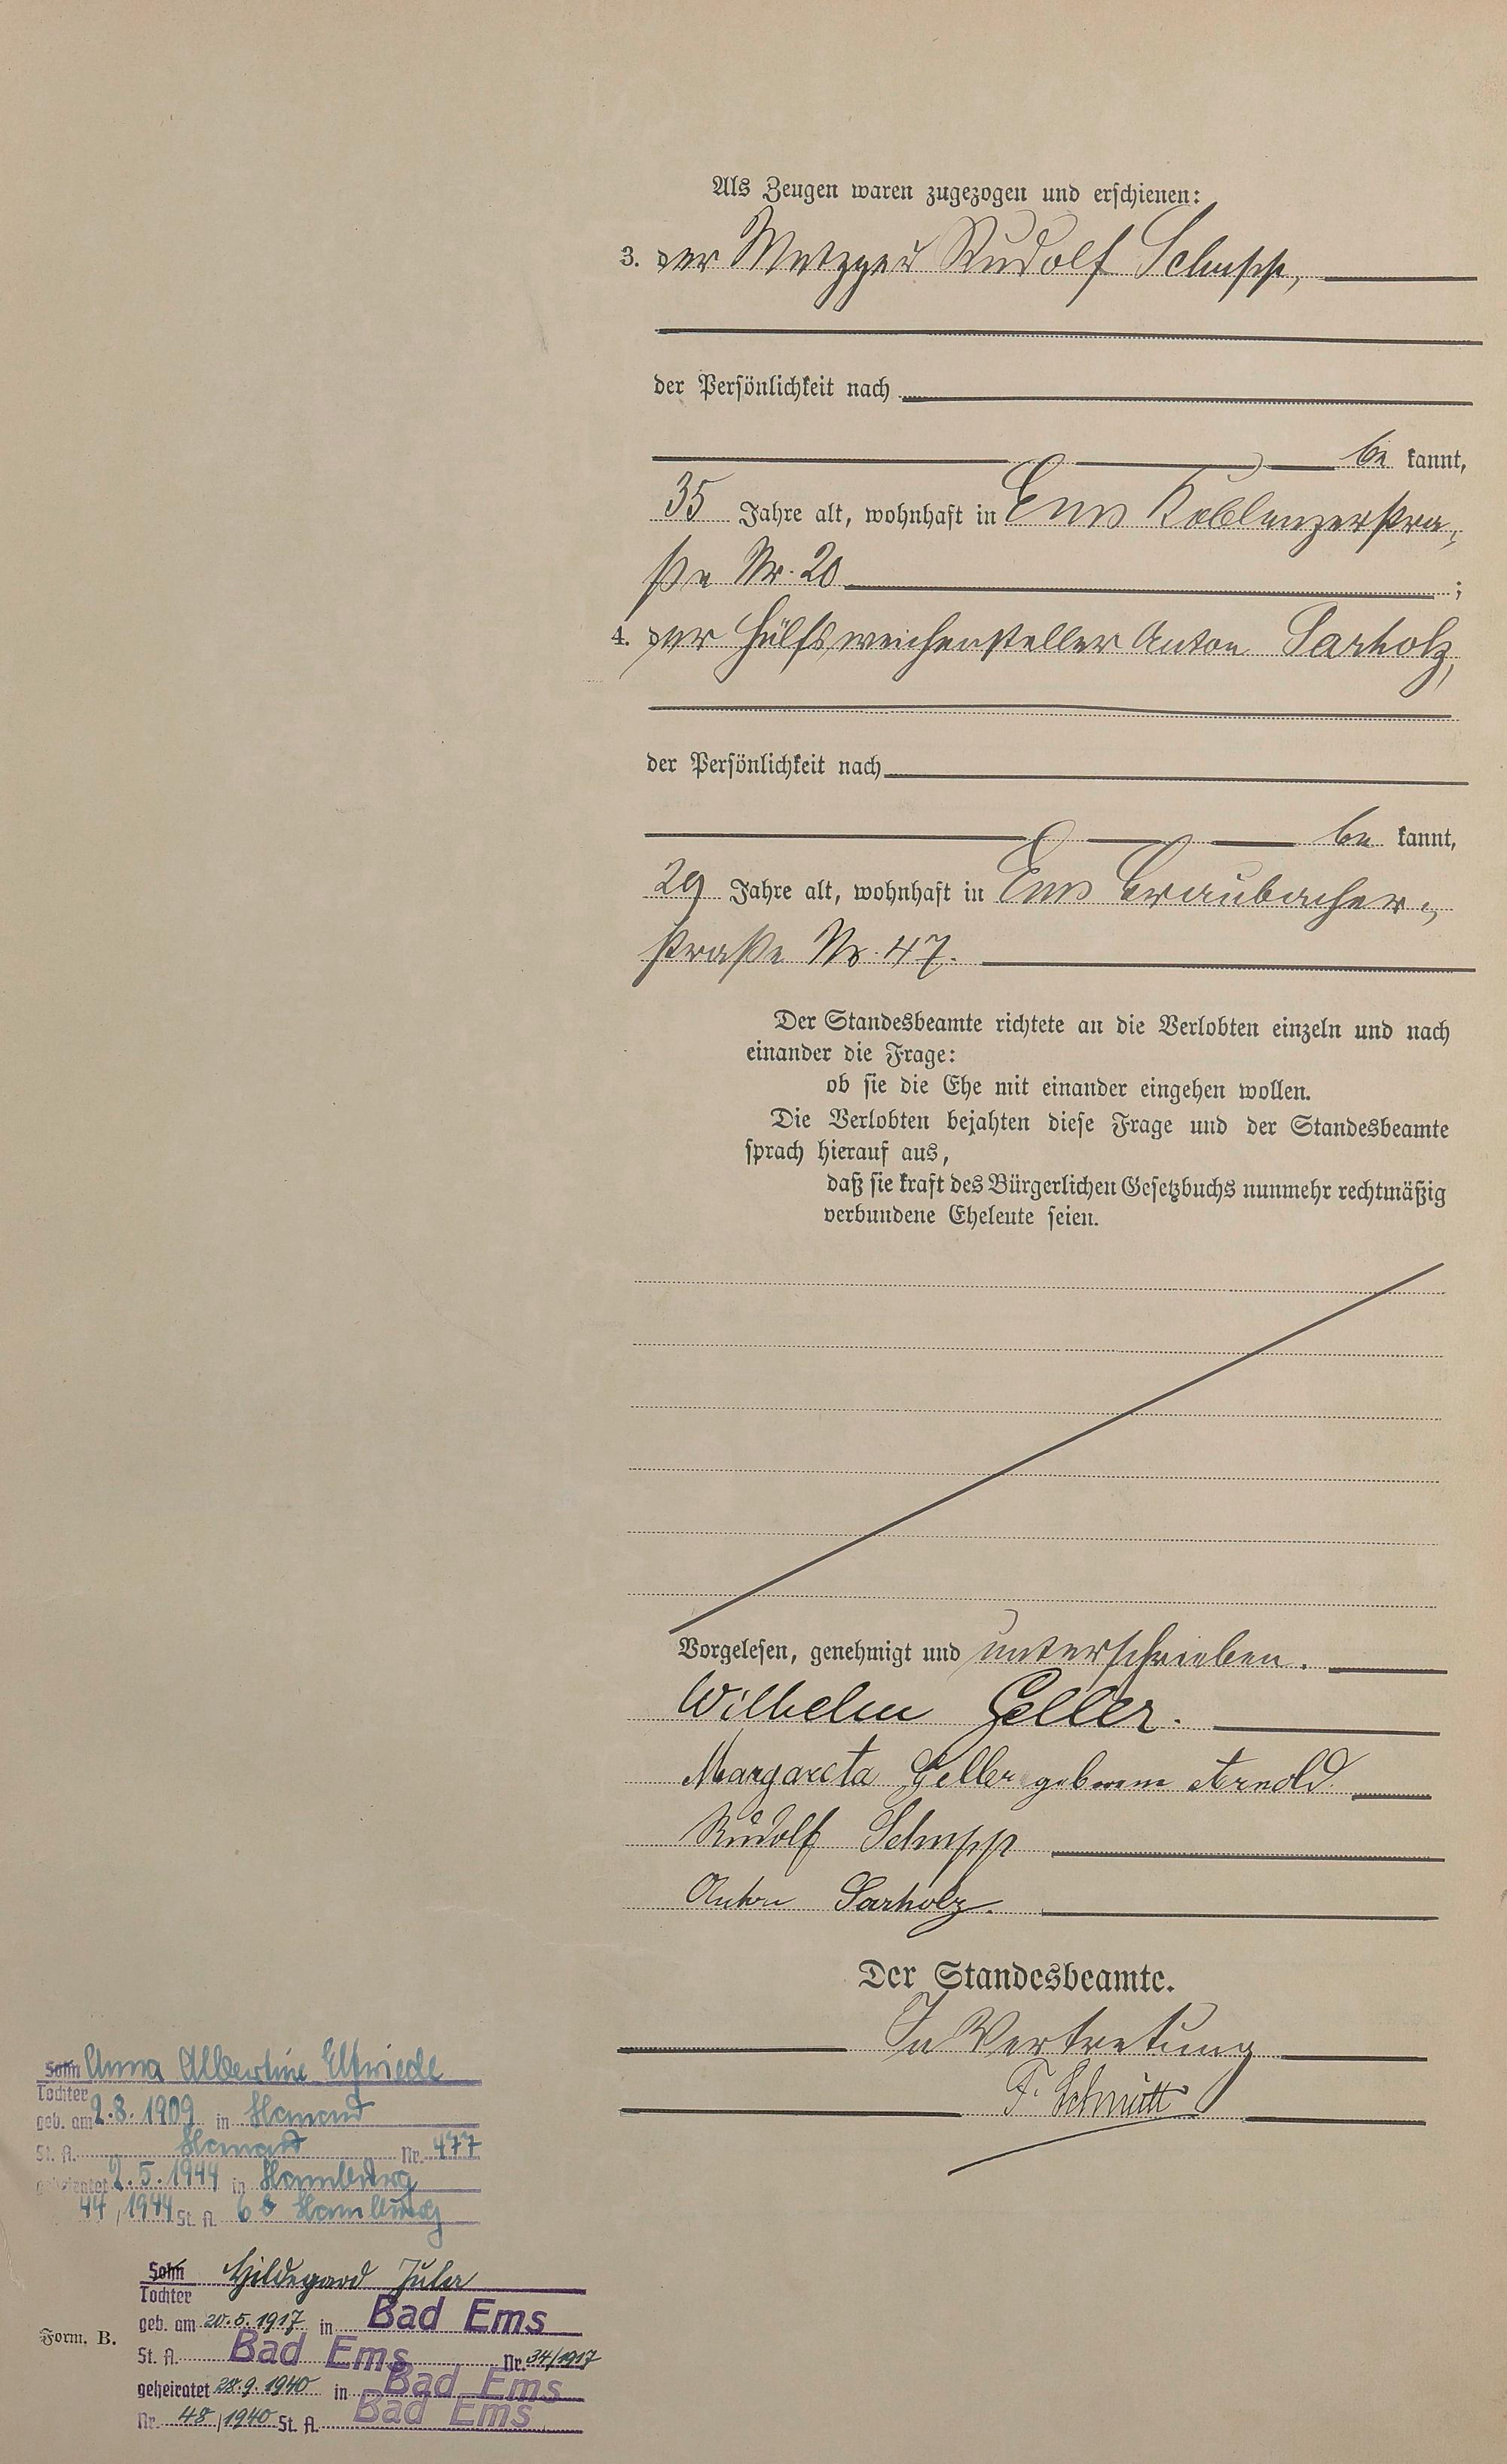 Als Zeugen waren zugezogen und erschienen:
3. der Metzger Rudolf Schupp,
der Persönlichkeit nach
be kannt,
35 Jahre alt, wohnhaft in Ems Koblenzerstra-
ße Nr. 20 ;
4. der Hülfsweichensteller Anton Sarholz,
der Persönlichkeit nach
be kannt,
29 Jahre alt, wohnhaft in Ems Braubacher-
straße Nr. 47.
Der Standesbeamte richtete an die Verlobten einzeln und nach
einander die Frage:
ob sie die Ehe mit einander eingehen wollen.
Die Verlobten bejahten diese Frage und der Standesbeamte
sprach hierauf aus,
daß sie kraft des Bürgerlichen Gesetzbuchs nunmehr rechtmäßig
verbundene Eheleute seien.
Vorgelesen, genehmigt und unterschrieben.
Wilhelm Geller.
Margareta Geller geborene Arnold.
Rudolf Schupp
Anton Sarholz.
Der Standesbeamte.
In Vertretung
F. Schmitt
Sohn Anna Albertine Elfriede
Tochter
geb. am 2.8.1909 in
St. A. Nr. 477
geheiratet 2.5.1944 in Hamburg
44/1944 St. A. Hamburg
Sohn Hildegard
Tochter
geb. am 20.5.1917 in Bad Ems
St. A. Bad Ems Nr. 34/1917
geheiratet 28.9.1940 in Bad Ems
Nr. 48/1940 St. A. Bad Ems
Form. B.